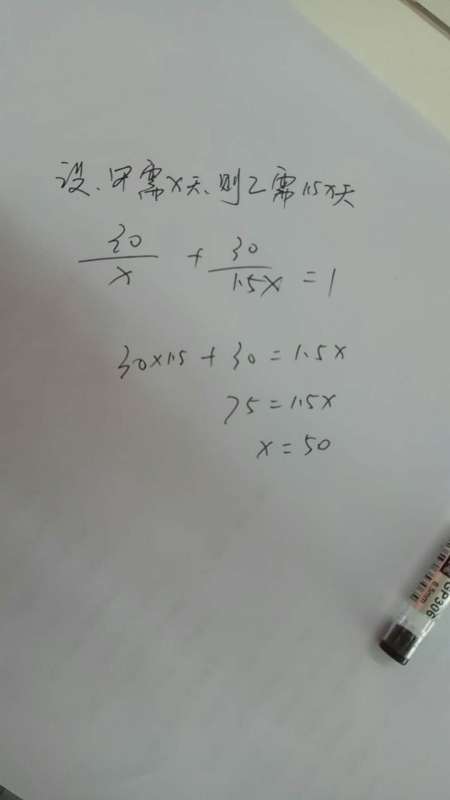 设、甲需x天、则乙需1.5x天
30/x + 30/1.5x = 1
30×1.5 + 30 = 1.5x
75 = 1.5x
x = 50
GP306
0.5mm